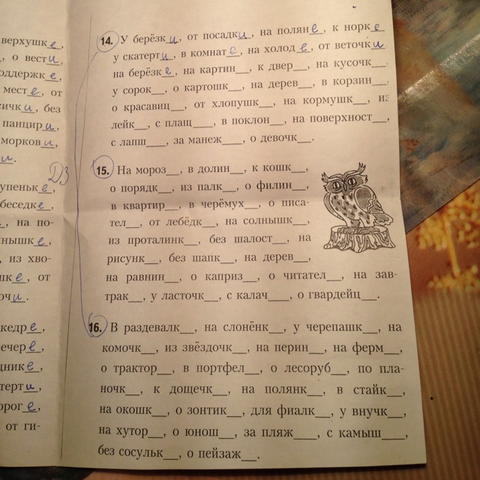 верхушке,
, о вести,
оддержке,
месте, от
ички, без
панцире,
моркови,
и.
ДЗ
упеньке,
беседке,
, на по-
нышке,
, из хво-
шке, от
очи.
кедре,
вечере,
днике,
терти,
ороге,
, от ги-
14. У берёзки, от посадки, на поляне, к норке
у скатерти, в комнате, на холоде, от веточки
на берёзке, на картин__, к двер__, на кусочк__
у сорок__, о картошк__, на дерев__, в корзин__
о красавиц__, от хлопушк__, на кормушк__, из
лейк__, с плащ__, в поклон__, на поверхност__,
с лапш__, за манеж__, о девочк__.
15. На мороз__, в долин__, к кошк__,
о порядк__, из палк__, о филин__,
в квартир__, в черёмух__, о писа-
тел__, от лебёдк__, на солнышк__,
из проталинк__, без шалост__, на
рисунк__, без шапк__, на дерев__,
на равнин__, о каприз__, о читател__, на зав-
трак__, у ласточк__, с калач__, о гвардейц__.
16. В раздевалк__, на слонёнк__, у черепашк__, на
комочк__, из звёздочк__, на перин__, на ферм__,
о трактор__, в портфел__, о лесоруб__, по пла-
ночк__, к дощечк__, на полянк__, в стайк__,
на окошк__, о зонтик__, для фиалк__, у внучк__,
на хутор__, о юнош__, за пляж__, с камыш__,
без сосульк__, о пейзаж__.